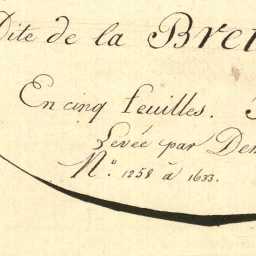 Dite de la Bre
En cinq feuilles.
Levée par De
N.º 1258 à 1633.